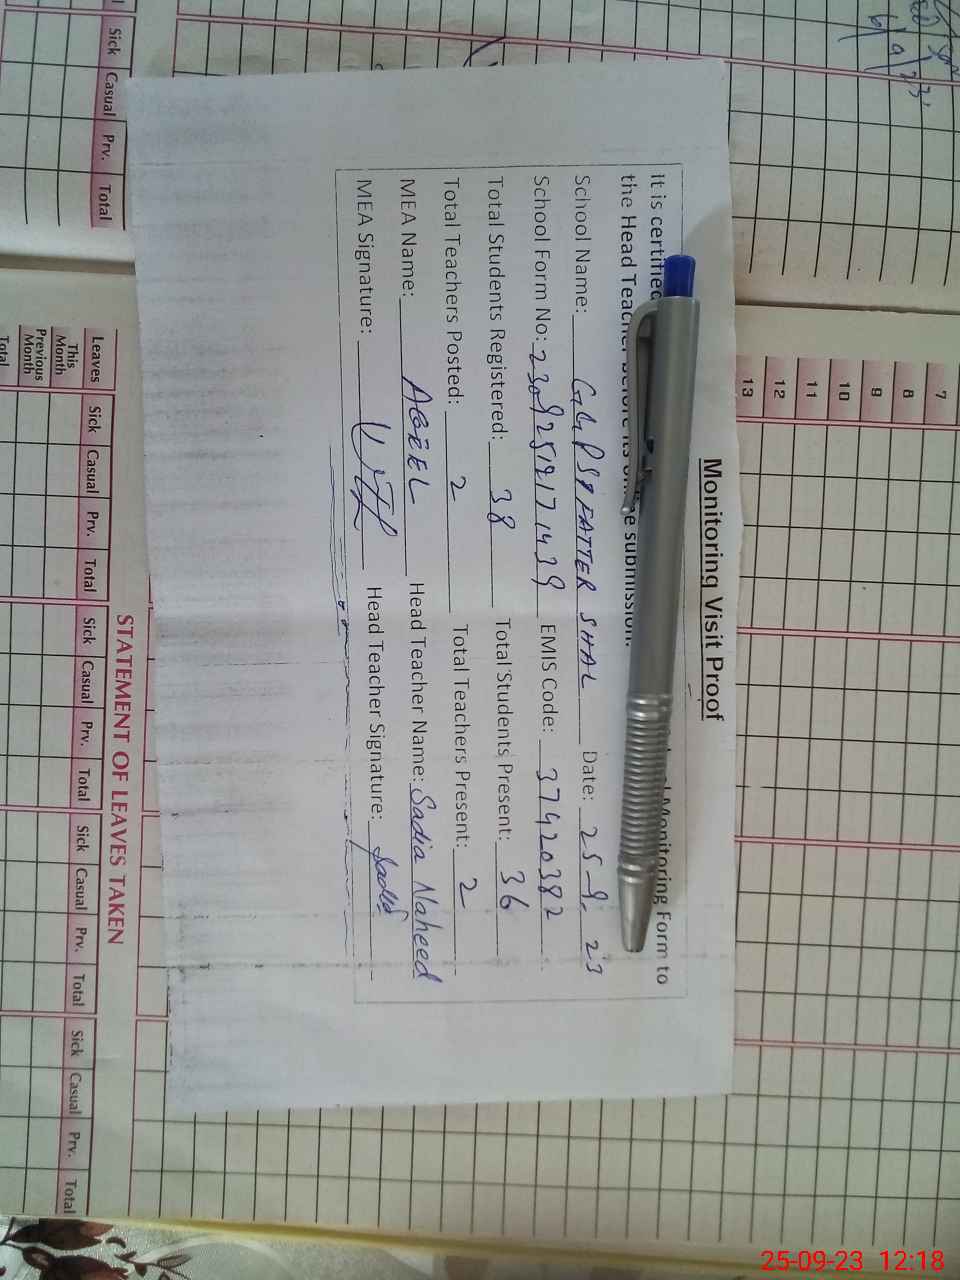 Monitoring Visit Proof
It is certified Monitoring Form to
the Head Teacher before its submission.
School Name: GGPS FATTER SHAL Date: 25-9-23
School Form No: EMIS Code: 37420382
Total Students Registered: 38 Total Students Present: 36
Total Teachers Posted: 2 Total Teachers Present: 2
MEA Name: AQEEL Head Teacher Name: Sadia Naheed
MEA Signature: Head Teacher Signature: Sadia
7
8
9
10
11
12
13
Sick Casual Prv. Total
STATEMENT OF LEAVES TAKEN
Leaves Sick Casual Prv. Total Sick Casual Prv. Total Sick Casual Prv. Total Sick Casual Prv. Total
This Month
Previous Month
Total
25-09-23 12:18